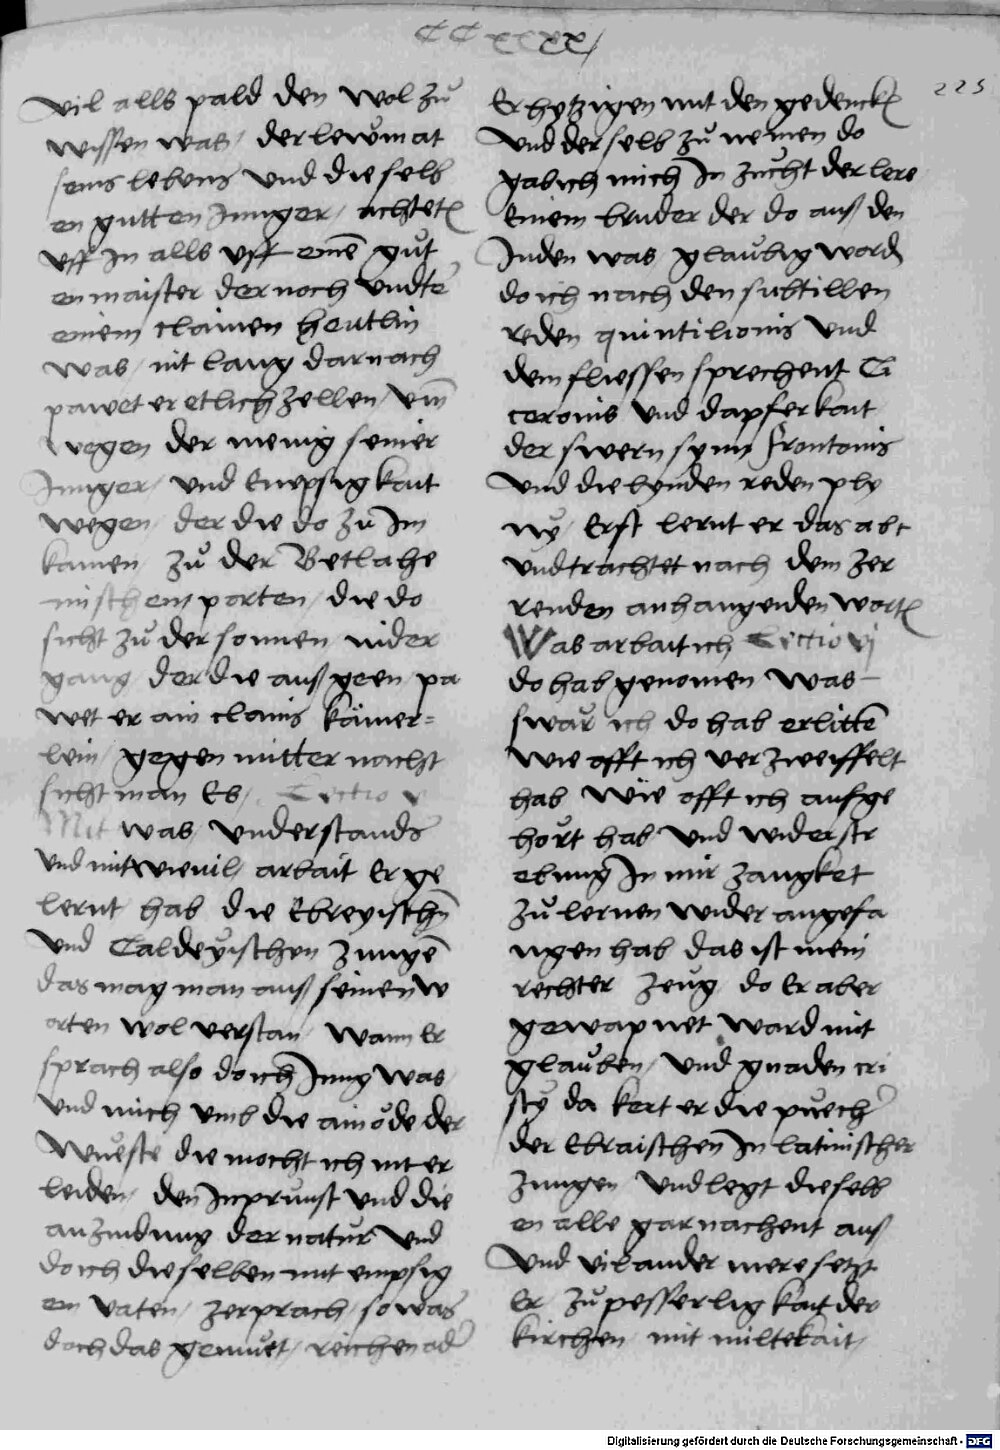 CCxxxx
225
vil alls pald den wol zů
wissen was / der lewm at
seins lebens vnd die selb
en gutten Junger / achtet
vff In alls vff einē gůt
en maister der noch vndte
einem clainen heutlin
was / nit lang darnach
pawet er etlich zellen / vm
wegen der menig seiner
Junger / vnd Empsigkait
wegen / der die do zů Im
kamen / zů der Betlahe
mischem porten / die do
sicht zů der sonnen nider
gang der die auß geen pa
wet er ain clains kämer=
lein / gegen mitter nacht
sicht man Eb / Lectio v
Mit was / vnderstands
vnd mit wieuil / arbait Er ge
lernt hab die Ebreyischn̄
vnd Caldeÿischen zungē
das mag man auß seinen w
orten wol verstan / wann Er
sprach also do ich Jung was /
vnd mich vmb die ainöde der
wueste die mocht ich nit er
leiden / den Inprunst vnd die
anzindung der natur vnd
do ich dieselben mit empsig
em vaten / zerprach / so was
doch das gemuet / reichen od
Erhytzigen mit den gedenck
vnd der selb zů nemen do
gab ich mich In zucht der lere
Einem bruder der do auß den
Juden was glaubig word
do ich nach den subtillen
reden quintilionis vnd
dem fliessen sprechent Ci
ceronis vnd dapferkait
der swern synn frontonis
vnd die lynden reden ply
nÿ / Erst lernt er das abc
vnd trachtet nach dem zer
renden anhangenden wort
Was arbait ich Lectio vj
do hab genomen was
swär ich do hab erlittē
wie offt ich verzweiffelt
hab wie offt ich aufge
hört hab vnd widerstr
ebung In mir zangket
zů lernen wider angefa
ngen hab das ist mein
rechter zeug do Er aber
gewapnet ward mit
glauben / vnd gnaden cri
stÿ da kert er die puech
der Ebraischen In latinischer
zungen vnd legt dieselb
en alle gar nachent auß
vnd vil ander mere setzt
Er / zů pesserligkait der
kirchen / mit miltekait /
Digitalisierung gefördert durch die Deutsche Forschungsgemeinschaft - DFG